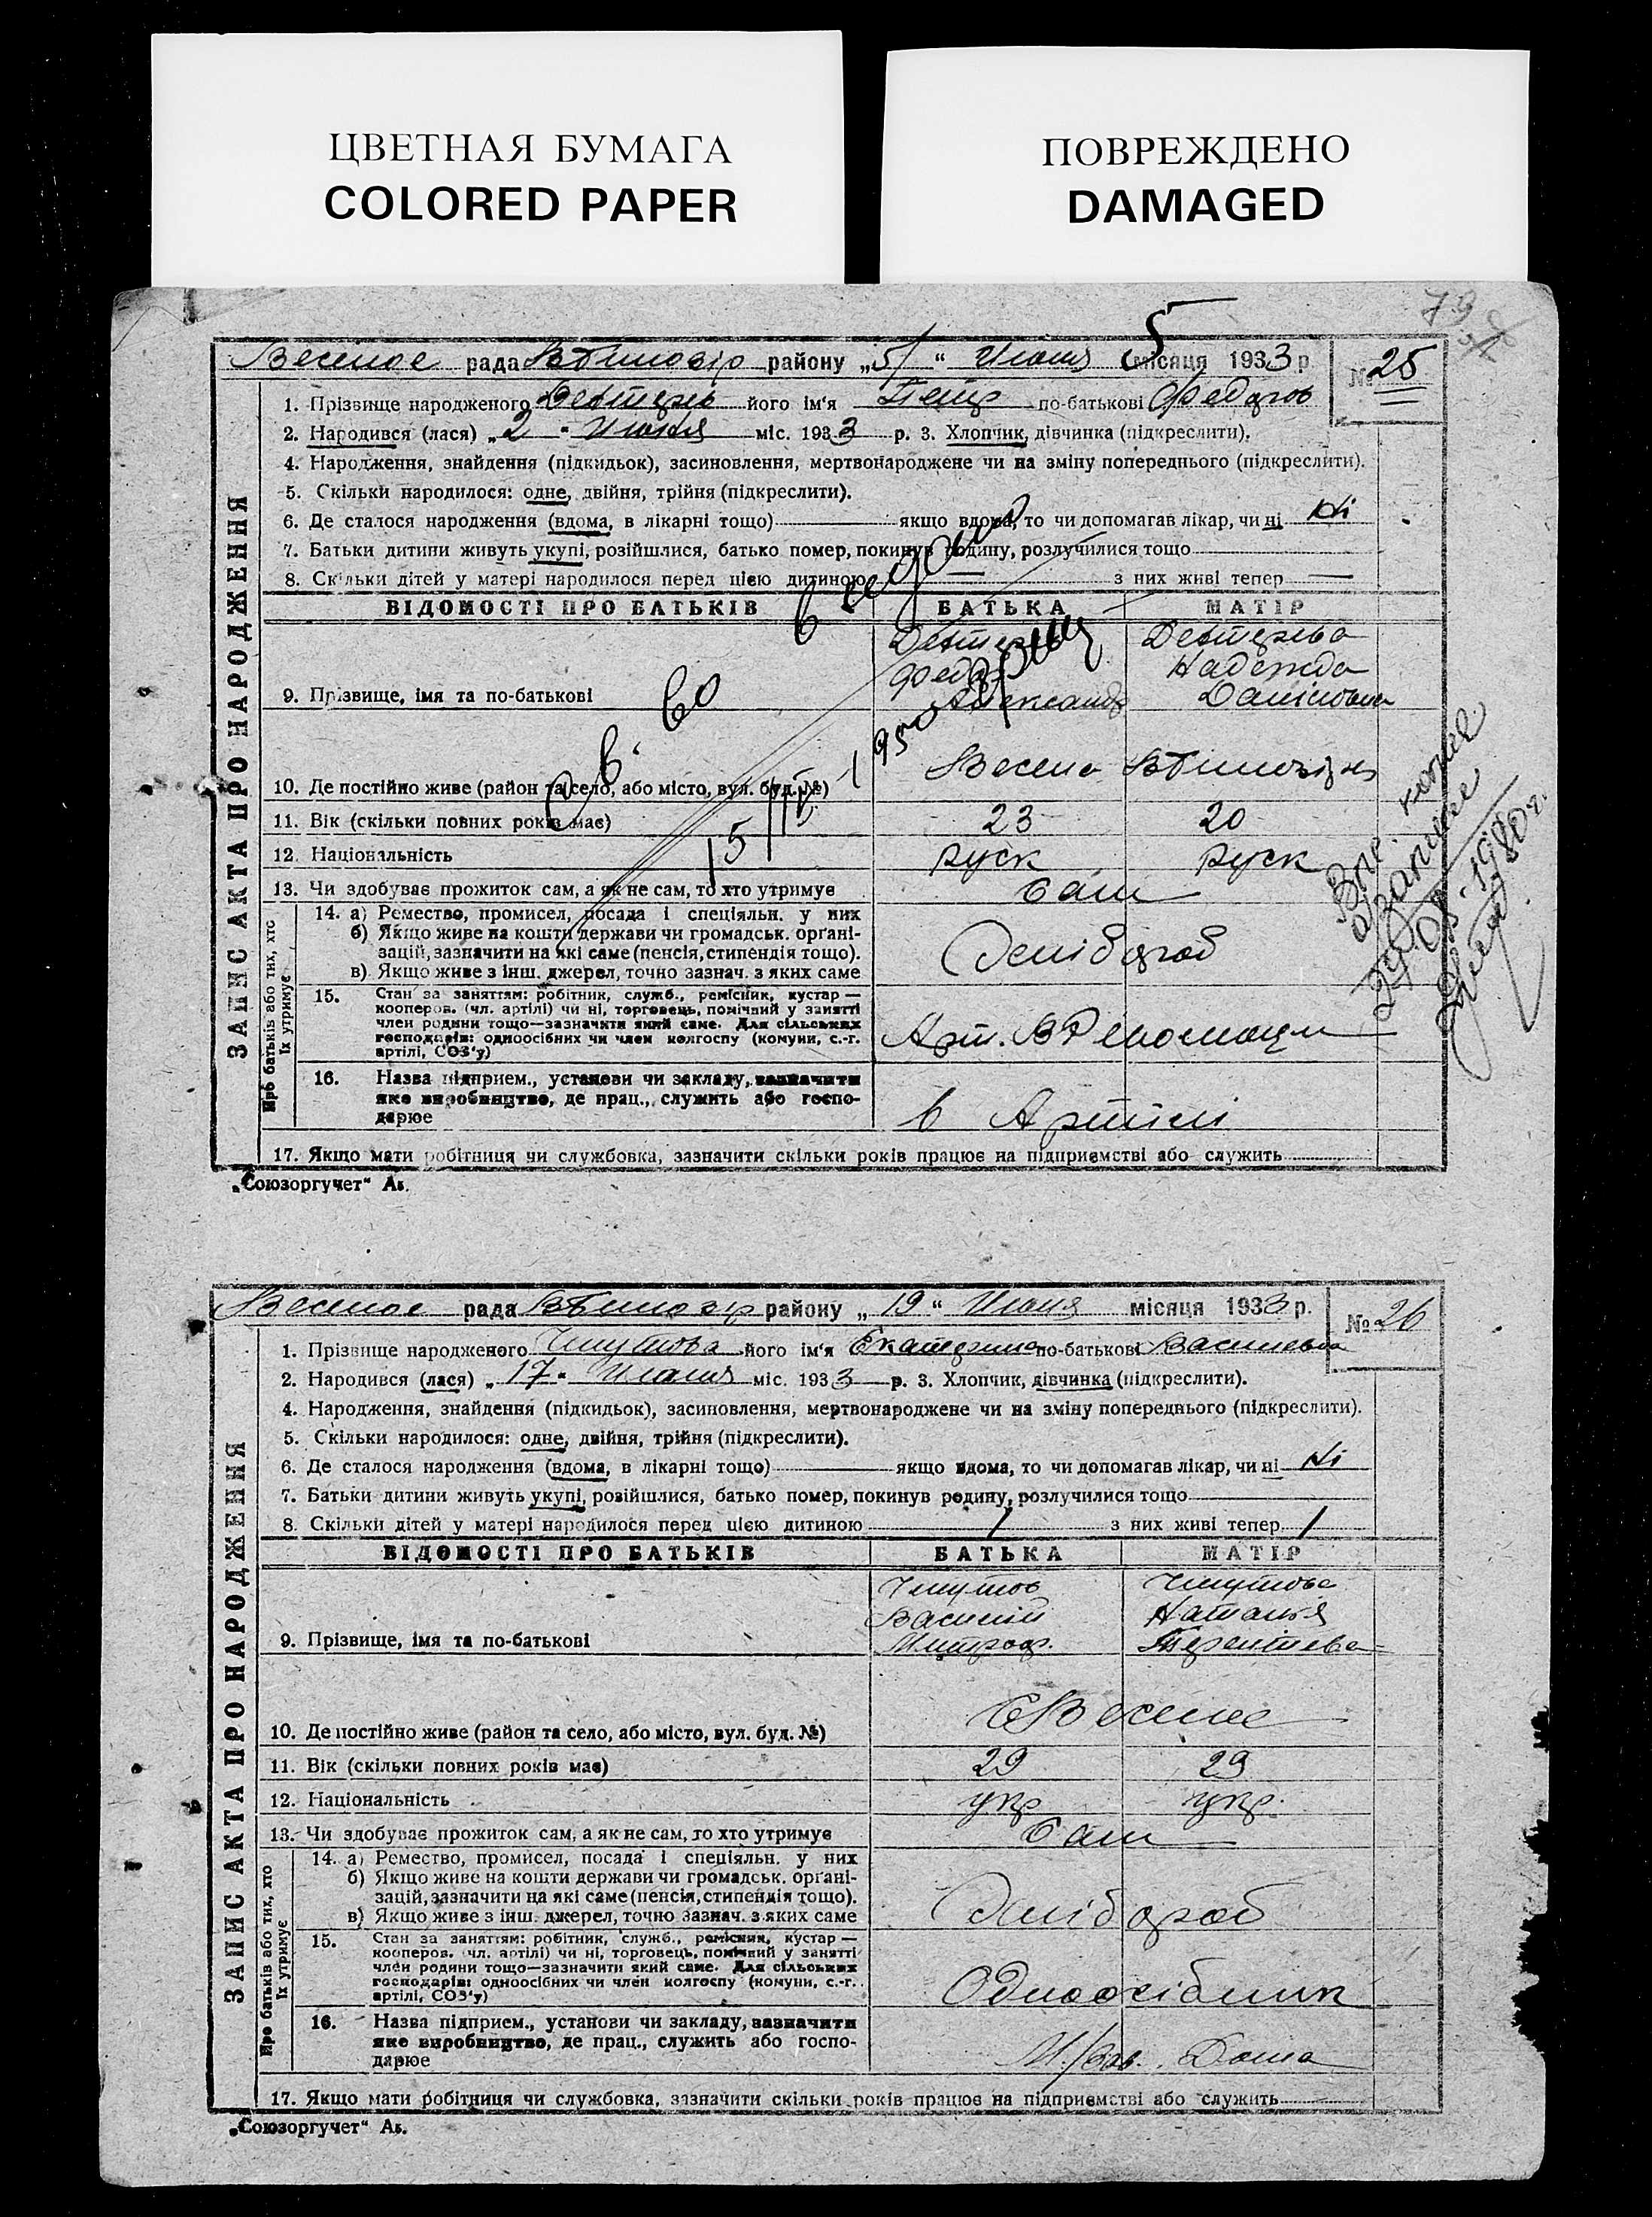 ЦВЕТНАЯ БУМАГА
COLORED PAPER
ПОВРЕЖДЕНО
DAMAGED
79
Веселое рада району „5“ Июня місяця 1933 р. № 25
ЗАПИС АКТА ПРО НАРОДЖЕННЯ
1. Прізвище народженого його ім'я Петр по-батькові Федоров
2. Народився (лася) „2“ Июня міс. 1933 р. 3. Хлопчик, дівчинка (підкреслити).
4. Народження, знайдення (підкидьок), засиновлення, мертвонароджене чи на зміну попереднього (підкреслити).
5. Скільки народилося: одне, двійня, трійня (підкреслити).
6. Де сталося народження (вдома, в лікарні тощо) якщо вдома, то чи допомагав лікар, чи ні Ні
7. Батьки дитини живуть укупі, розійшлися, батько помер, покинув родину, розлучилися тощо
8. Скільки дітей у матері народилося перед цією дитиною — з них живі тепер —
ВІДОМОСТІ ПРО БАТЬКІВ БАТЬКА МАТІР
Надежда
9. Прізвище, імя та по-батькові
10. Де постійно живе (район та село, або місто, вул. буд. №)
11. Вік (скільки повних років має) 23 20
12. Національність руск руск
13. Чи здобуває прожиток сам, а як не сам, то хто утримує Сам
Про батьків або тих, хто їх утримує
14. а) Ремество, промисел, посада і спеціяльн. у них
б) Якщо живе на кошти держави чи громадськ. органі-
зацій, зазначити на які саме (пенсія, стипендія тощо).
в) Якщо живе з інш. джерел, точно зазнач. з яких саме
Хлібороб
15. Стан за заняттям: робітник, служб., ремісник, кустар —
кооперов. (чл. артілі) чи ні, торговець, помічний у занятті
член родини тощо—зазначити який саме. Для сільських
господарів: одноосібних чи член колгоспу (комуни, с.-г.
артілі, СОЗ'у)
Арт.
16. Назва підприєм., установи чи закладу, зазначити
яке виробництво, де прац., служить або госпо-
дарює
в Артілі
17. Якщо мати робітниця чи службовка, зазначити скільки років працює на підприємстві або служить
„Союзоргучет“
1980 г.
Веселое рада району „19“ Июня місяця 1933 р. № 26
ЗАПИС АКТА ПРО НАРОДЖЕННЯ
1. Прізвище народженого його ім'я Екатерина по-батькові Васильевна
2. Народився (лася) „17“ Июня міс. 1933 р. 3. Хлопчик, дівчинка (підкреслити).
4. Народження, знайдення (підкидьок), засиновлення, мертвонароджене чи на зміну попереднього (підкреслити).
5. Скільки народилося: одне, двійня, трійня (підкреслити).
6. Де сталося народження (вдома, в лікарні тощо) якщо вдома, то чи допомагав лікар, чи ні Ні
7. Батьки дитини живуть укупі, розійшлися, батько помер, покинув родину, розлучилися тощо
8. Скільки дітей у матері народилося перед цією дитиною 1 з них живі тепер 1
ВІДОМОСТІ ПРО БАТЬКІВ БАТЬКА МАТІР
Василій Наталья
9. Прізвище, імя та по-батькові Митроф. Терентева
10. Де постійно живе (район та село, або місто, вул. буд. №)
11. Вік (скільки повних років має) 29 29
12. Національність укр укр.
13. Чи здобуває прожиток сам, а як не сам, то хто утримує Сам
Про батьків або тих, хто їх утримує
14. а) Ремество, промисел, посада і спеціяльн. у них
б) Якщо живе на кошти держави чи громадськ. органі-
зацій, зазначити на які саме (пенсія, стипендія тощо).
в) Якщо живе з інш. джерел, точно зазнач. з яких саме
Хлібороб
15. Стан за заняттям: робітник, служб., ремісник, кустар —
кооперов. (чл. артілі) чи ні, торговець, помічний у занятті
член родини тощо—зазначити який саме. Для сільських
господарів: одноосібних чи член колгоспу (комуни, с.-г.
артілі, СОЗ'у)
Одноосібник
16. Назва підприєм., установи чи закладу, зазначити
яке виробництво, де прац., служить або госпо-
дарює
Дома
17. Якщо мати робітниця чи службовка, зазначити скільки років працює на підприємстві або служить
„Союзоргучет“